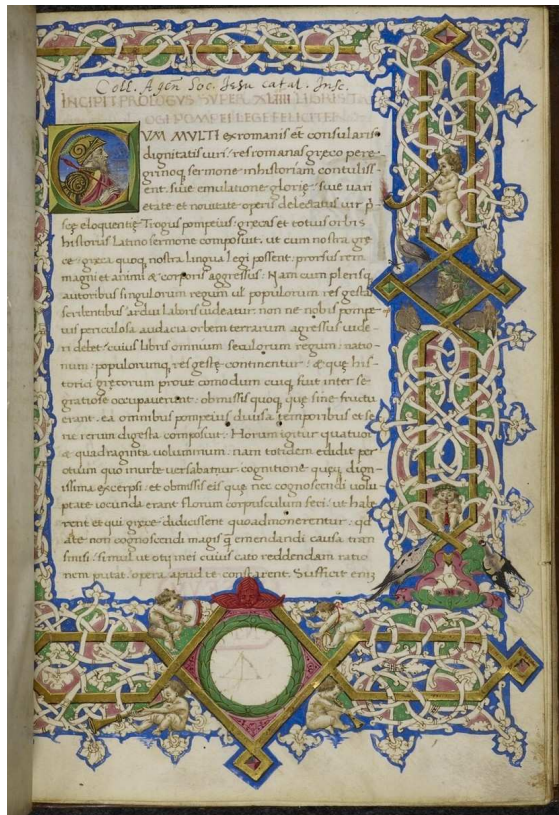 Coll. Agen Soc. Jesu Catal. Insc.
INCIPIT PROLOGVS SVPER XLIIII LIBRIS TR
OGI POMPEI LEGE FELICITER
CVM MVLTI ex romanis et consularis
dignitatis uiri res romanas greco pere
grinoq sermone in historiam contuliss
ent. siue emulatione glorię siue uari
etate et nouitate operis delectatus uir p
scę eloquentię Trogus pompeius grecas et totius orbis
historias latino sermone composuit. ut cum nostra grę
ce greca quoq nostra lingua legi possent. prorsus rem
magni et animi & corporis aggressus. Nam cum plerisq
autoribus singulorum regum ul populorum res gestas
scribentibus ardui laboris uideatur. non ne nobis pompe
ius periculosa audacia orbem terrarum agressus uide
ri debet. cuius libris omnium seculorum regum natio
num populorumq res gestę continentur. & quę his
torici gręcorum prout comodum cuiq fuit inter se
gratiose occupauerunt. obmissis quoq quę sine fructu
erant. ea omnibus pompeius diuisa temporibus et se
rie rerum digesta composuit. Horum igitur quatuor
& quadraginta uoluminum. nam totidem edidit per
otium quo in urbe uersabamur. cognitione quęq dign
issima excerpsi. et obmissis eis quę nec cognoscendi uolu
ptate iocunda erant florum corpusculum feci. ut habe
rent et qui gręce didicissent quo admonerentur. qd
ate non cognoscendi magis q emendandi causa tran
smisi. simul ut otij mei cuius cato reddendam ratio
nem putat. opera apud te constarent. Sufficit eniz